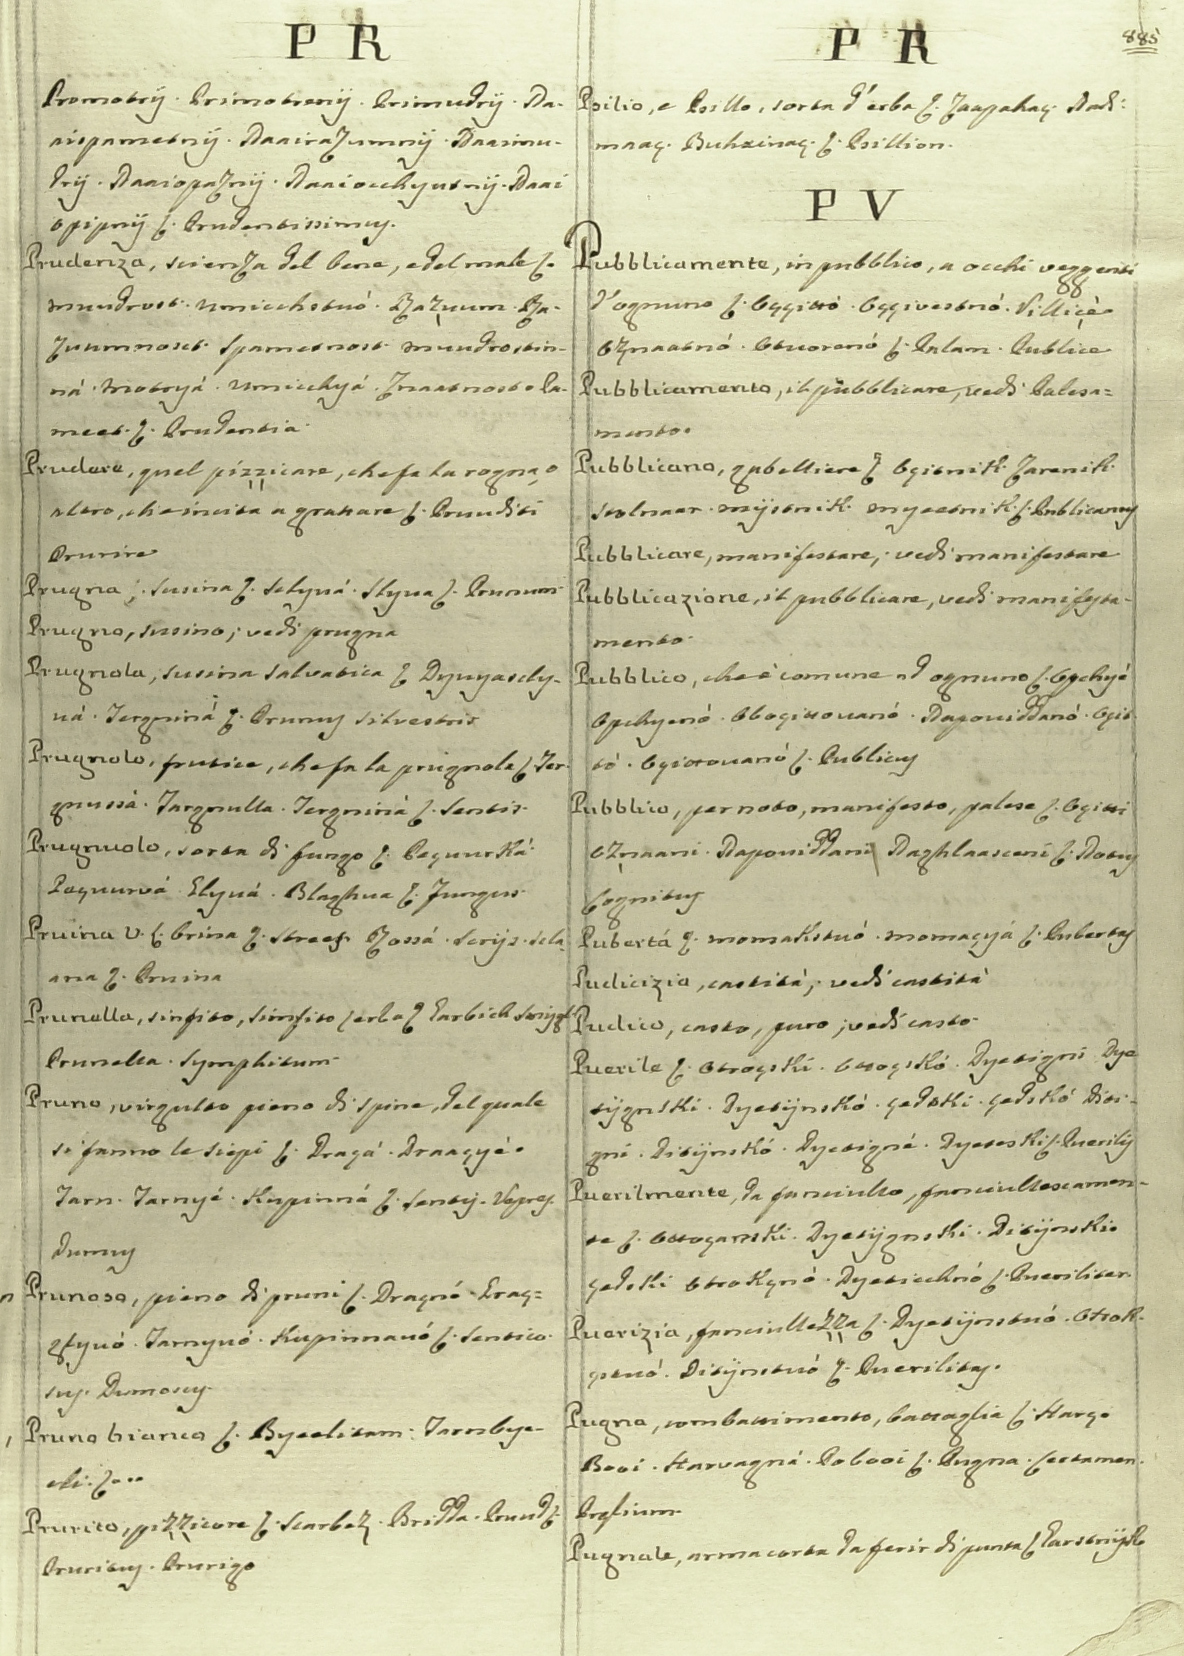 P R
Promotrij. Primotrenij. Primudrij. Da-
aispametnij. Daairazumnij. Daaimu-
drij. Daaiopaznij. Daaiocchyutnij. Daai
opipnij L. Prudentissimus.
Prudenza, scienza del bene, e del male S.
muudrost. umicchstvó. Razuum. Ra-
zuumnost. Spametnost. muudrostin-
ná. motryá. umicchyá. Znaatnost. Pa-
meet. L. Prudentia.
Prudere, quel pizzicare, che fa la rogna, o
altro, che incita a grattare S. Pruuditi
Prurire
Prugna, susina S. Slyvá. Slyva L. Prunum
Prugno, susino; vedi prugna
Prugnola, susina salvatica S. Dyvyasly-
vá. Tergniná L. Prunus silvestris
Prugnolo, frutice, che fa la prugnola S. Ter-
gnussá. Targnulla. Tergniná L. Sentis.
Prugnuolo, sorta di fungo S. Peçuurká.
Peçuurvá. Glyvá. Blaghva L. Fungus.
Pruina V. S. brina S. Streef Rossá. Scrijs. Sla-
ana L. Pruina
Prunella, sinfito, simfito, erba S. Garbich
Prunella. Symphitum.
Pruno, virgulto pieno di spine, del quale
si fanno le siepi S. Draçá. Draaçyé.
Tarn. Tarnyé. Kupinná L. Sentis. Vepres.
Dumus
Prunoso, pieno di pruni S. Draçnó.
Tarnyvó. Kupinnavó L. Sentico-
sus. Dumosus.
Pruno bianco S. Byeelitarn. Tarnbye-
eli. L...
Prurito, pizzicore S. Scarbez. Bridda. Pruud L.
Pruritus. Prurigo
P R
885
Psilio, e Psillo, sorta d'erba S.
Buhaçinaç. L. Psillion.
P V
Pubblicamente, in pubblico, a occhi veggenti
d'ognuno S. Oççittó. Oççivestnó.
Oznaatnó. Otvorenó L. Palam. Publice
Pubblicamento, il pubblicare, vedi Palesa-
mento.
Pubblicano, gabelliere S. Harenik.
Stolnaar. mijtnik. myeetnik. L. Publicanus
Pubblicare, manifestare, vedi manifestare
Pubblicazione, il pubblicare, vedi manifesta-
mento.
Pubblico, che è comune ad ognuno S. Opchyé
Opchyenó. Obogittovanó. Napoviddanó. Oçit-
tó. Oçittovanó L. Publicus
Pubblico, per noto, manifesto, palese S. Oçitti
Oznaani. Napoviddani Naghlaasceni L. Notus
Cognitus
Pubertá S. momakstvó. momaçyá L. Pubertas
Pudicizia, castitá, vedi castitá
Pudico, casto, puro; vedi casto.
Puerile S. Otroçski. Otroçskó. Dyetigni Dye-
tijgnski. Dyetijnskó. çedski. çedskó Diti-
gni. Ditijnskó. Dyetigné. Dyeteski L. Puerilis
Puerilmente, da fanciullo, fanciullescamen-
te S. Otroçanski. Dyetijgnski. Ditijnski.
çedski Otrokçnó. Dyeticchnó L. Pueriliter.
Puerizia, fanciullezza S. Dyetijnstvó. Otrok-
çtvó. Ditijnstvó L. Puerilitas.
Pugna, combattimento, battaglia S. Harç.
Booi. Harvagná. Pobooi L. Pugna. Certamen.
Prælium.
Pugnale, arma corta da ferir di punta S.